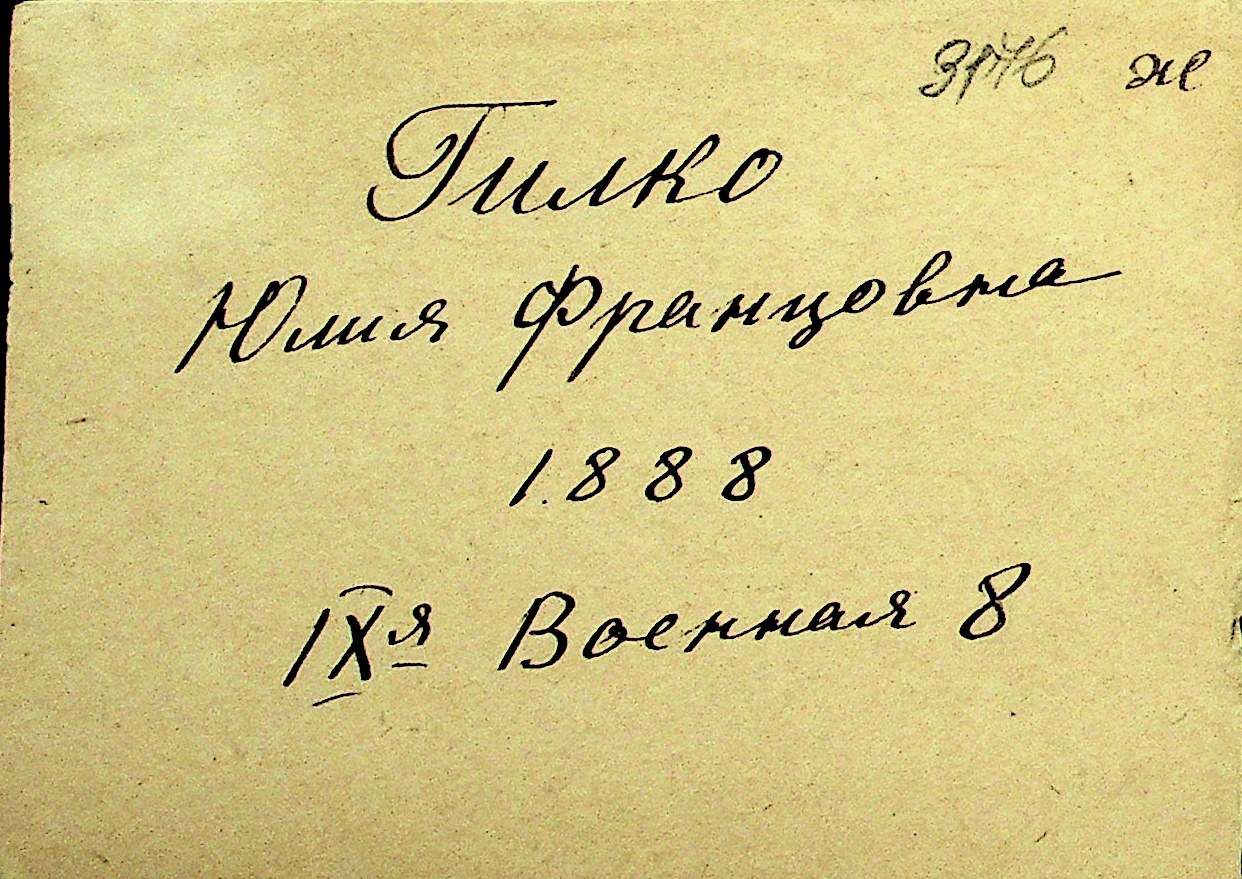 3176 ж
Гилко
Юлия Францовна
1888
IXя Военная 8